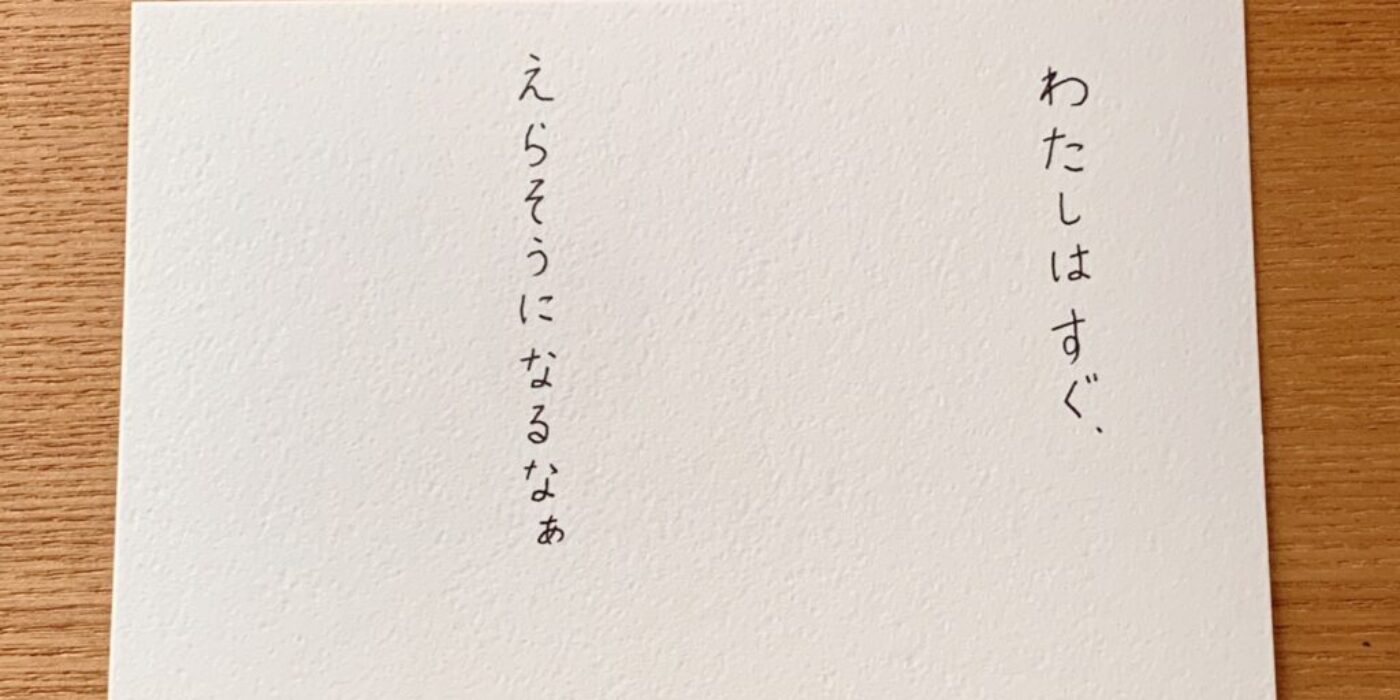 わたしはすぐ、
えらそうになるなぁ